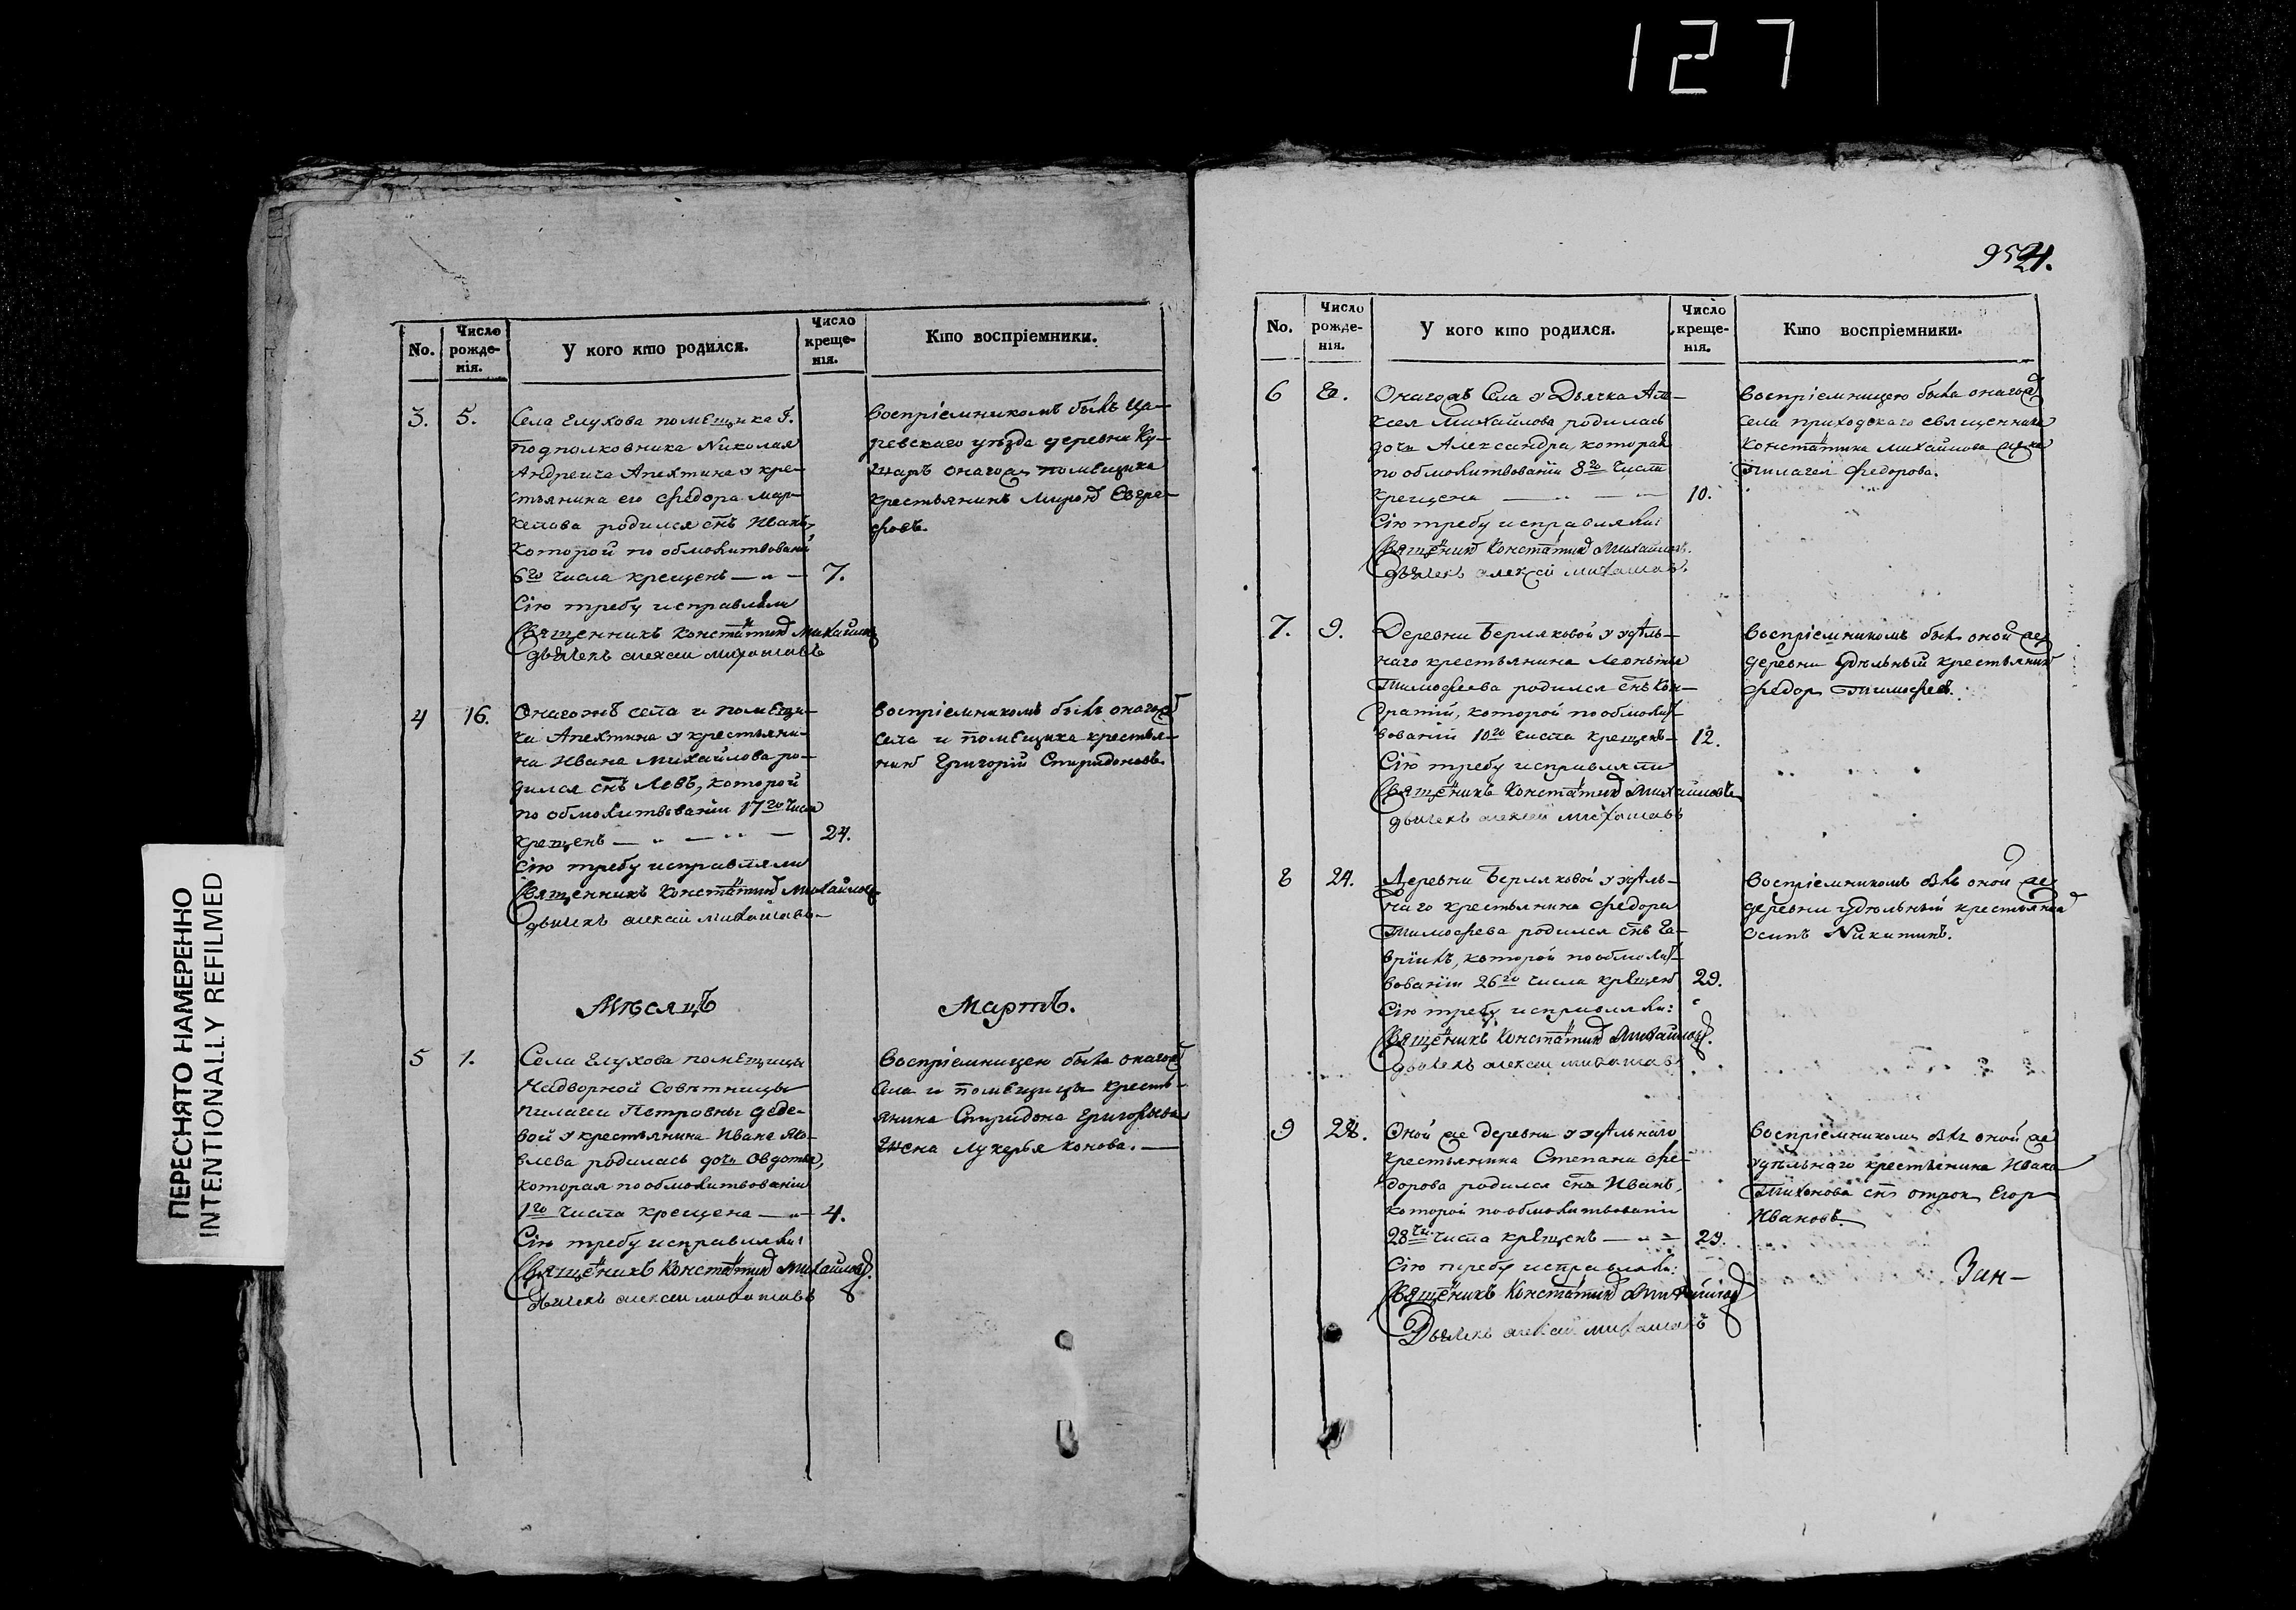 127
ПЕРЕСНЯТО НАМЕРЕННО
INTENTIONALLY REFILMED
No.
Число рожденія.
У кого кто родился.
Число крещенія.
Кто воспріемники.
3. 5.
Села Глухова помѣщика Г.
подполковника Николая
Андреича Апехтина у кре-
стьянина его Федора Мар-
келова родился снъ Иванъ,
которой по обмолитвованій
6го числа крещенъ — „ — 7.
Сію требу исправляли
Священникъ Констатинъ Михайловъ
дьячекъ алексеи михаиловъ
Воспріемникомъ былъ Ца-
ревскаго уѣзда деревни Ку-
онаго помѣщика
крестьянинъ Миронъ Евгра-
фовъ.
4 16.
Онагожъ села и помѣщи-
ка Апехтина у крестьяни-
на Ивана Михайлова ро-
дился снъ Левъ, которой
по обмолитвованіи 17го числа
крещенъ — „ — „ — 24.
Сію требу исправляли
Священникъ Констатинъ Михайловъ
дьячекъ алексѣй михаиловъ
Воспріемникомъ былъ онагожъ
села и помѣщика крестья-
нинъ Григорій Спиридоновъ.
Мѣсяцъ Мартъ.
5 1.
Села Глухова помѣщицы
Надворной Совѣтницы
Пилагеи Петровны Деде-
вой у крестьянина Ивана Яко-
влева родилась дочь Овдотья,
которая по обмолитвованіи
1го числа крещена — „ — 4.
Сію требу исправляли:
Священникъ Констатинъ Михайловъ.
дьячекъ алексеи михаиловъ
Воспріемницею была онагожъ
села и помѣщицы кресть-
янина Спиридона Григорьева
жена Лукерья Конова. —
95 21.
No.
Число рожденія.
У кого кто родился.
Число крещенія.
Кто воспріемники.
6 8.
Онагожъ Села у Дьячка Але-
ксея Михайлова родилась
дочь Александра, которая
по обмолитвованіи 8го числа
крещена — „ — 10.
Сію требу исправляли:
Священникъ Констатинъ Михайловъ.
дьячекъ алексѣй михаиловъ.
Воспріемницею была онагожъ
села приходскаго священника
Константина Михайлова жена
Пилагея Федорова.
7. 9.
Деревни Берляковой у удѣль-
наго крестьянина Леонтья
Тимофеева родился снъ Кон-
дратій, которой по обмолит-
вованіи 10го числа крещенъ — 12.
Сію требу исправляли
Священникъ Констатинъ Михайловъ
дьячекъ алексей михаиловъ
Воспріемникомъ былъ оной же
деревни удѣльный крестьянинъ
Федор Тимофеев.
8 24.
Деревни Берляковой у удѣль-
наго крестьянина Федора
Тимофева родился снъ Га-
вріилъ, которой по обмолит-
вованіи 26го числа крещенъ 29.
Сію требу исправляли:
Священникъ Констатинъ Михайловъ.
дьячекъ алексеи михаиловъ
Воспріемникомъ былъ оной же
деревни удѣльный крестьянинъ
Осипъ Никитинъ.
9 28.
Оной же деревни у удѣльнаго
крестьянина Степана Фе-
дорова родился снъ Иванъ,
которой по обмолитвованіи
28 числа крещенъ — „ — 29.
Сію требу исправляли:
Священникъ Констатинъ Михайловъ
Дьячекъ алексей михаиловъ
Воспріемникомъ былъ оной же
удѣльнаго крестьянина Ивана
Тихонова снъ отрок Егор
Ивановъ.